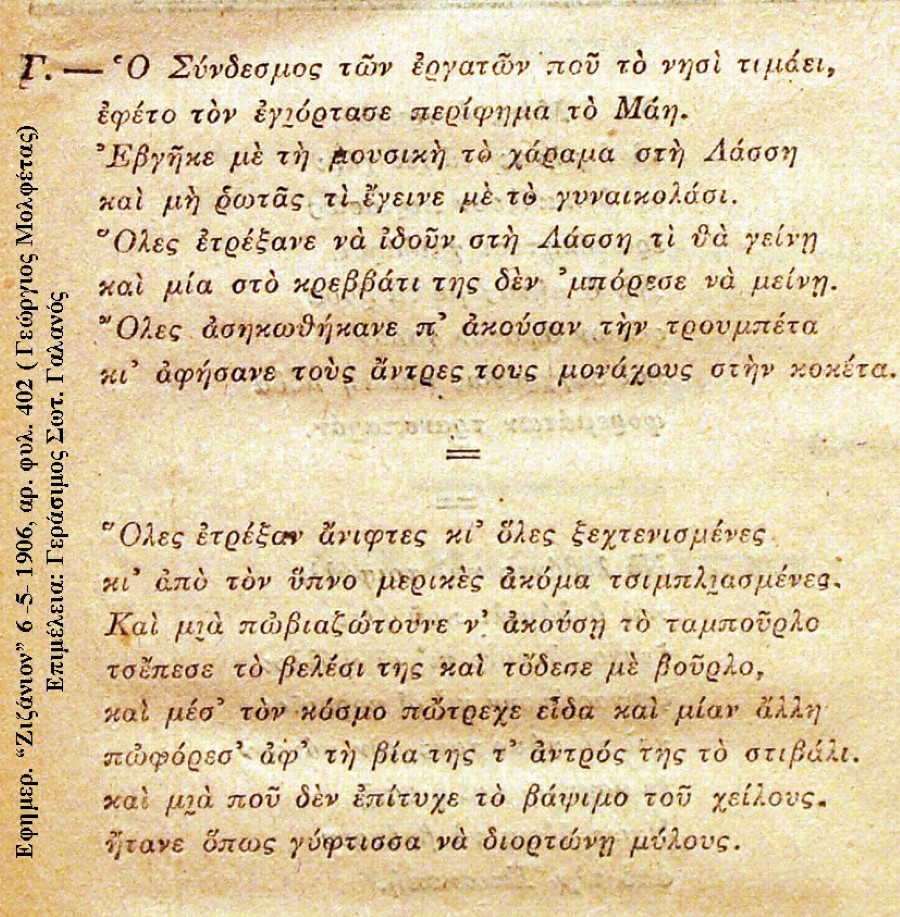 Γ. — Ὁ Σύνδεσμος τῶν ἐργατῶν ποῦ τὸ νησὶ τιμάει,
ἐφέτο τὸν ἐγιόρτασε περίφημα τὸ Μάη.
Ἐβγῆκε μὲ τὴ μουσικὴ τὸ χάραμα στὴ Λάσση
καὶ μὴ ῥωτᾷς τὶ ἔγεινε μὲ τὸ γυναικολάσι.
Ὅλες ἐτρέξανε νὰ ἰδοῦν στὴ Λάσση τὶ θὰ γείνῃ
καὶ μία στὸ κρεββάτι της δὲν ᾿μπόρεσε νὰ μείνῃ.
Ὅλες ἀσηκωθήκανε π᾿ ἀκούσαν τὴν τρουμπέτα
κι᾿ ἀφήσανε τοὺς ἄντρες τους μονάχους στὴν κοκέτα.
Ὅλες ἐτρέξαν ἄνιφτες κι᾿ ὅλες ξεχτενισμένες
κι᾿ ἀπὸ τὸν ὕπνο μερικὲς ἀκόμα τσιμπλιασμένες.
Καὶ μιὰ πὠβιαζώτουνε ν᾿ ἀκούσῃ τὸ ταμποῦρλο
τσἔπεσε τὸ βελέσι της καὶ τὄδεσε μὲ βοῦρλο,
καὶ μέσ᾿ τὸν κόσμο πὤτρεχε εἶδα καὶ μίαν ἄλλη
πὠφόρεσ᾿ ἀφ᾿ τὴ βία της τ᾿ ἀντρός της τὸ στιβάλι.
καὶ μιὰ ποῦ δὲν ἐπίτυχε τὸ βάψιμο τοῦ χείλους.
ἤτανε ὅπως γύφτισσα νὰ διορτώνῃ μύλους.
Εφημερ. “Ζιζάνιον” 6 -5- 1906, αρ. φυλ. 402 ( Γεώργιος Μολφέτας)
Επιμέλεια: Γεράσιμος Σωτ. Γαλανός